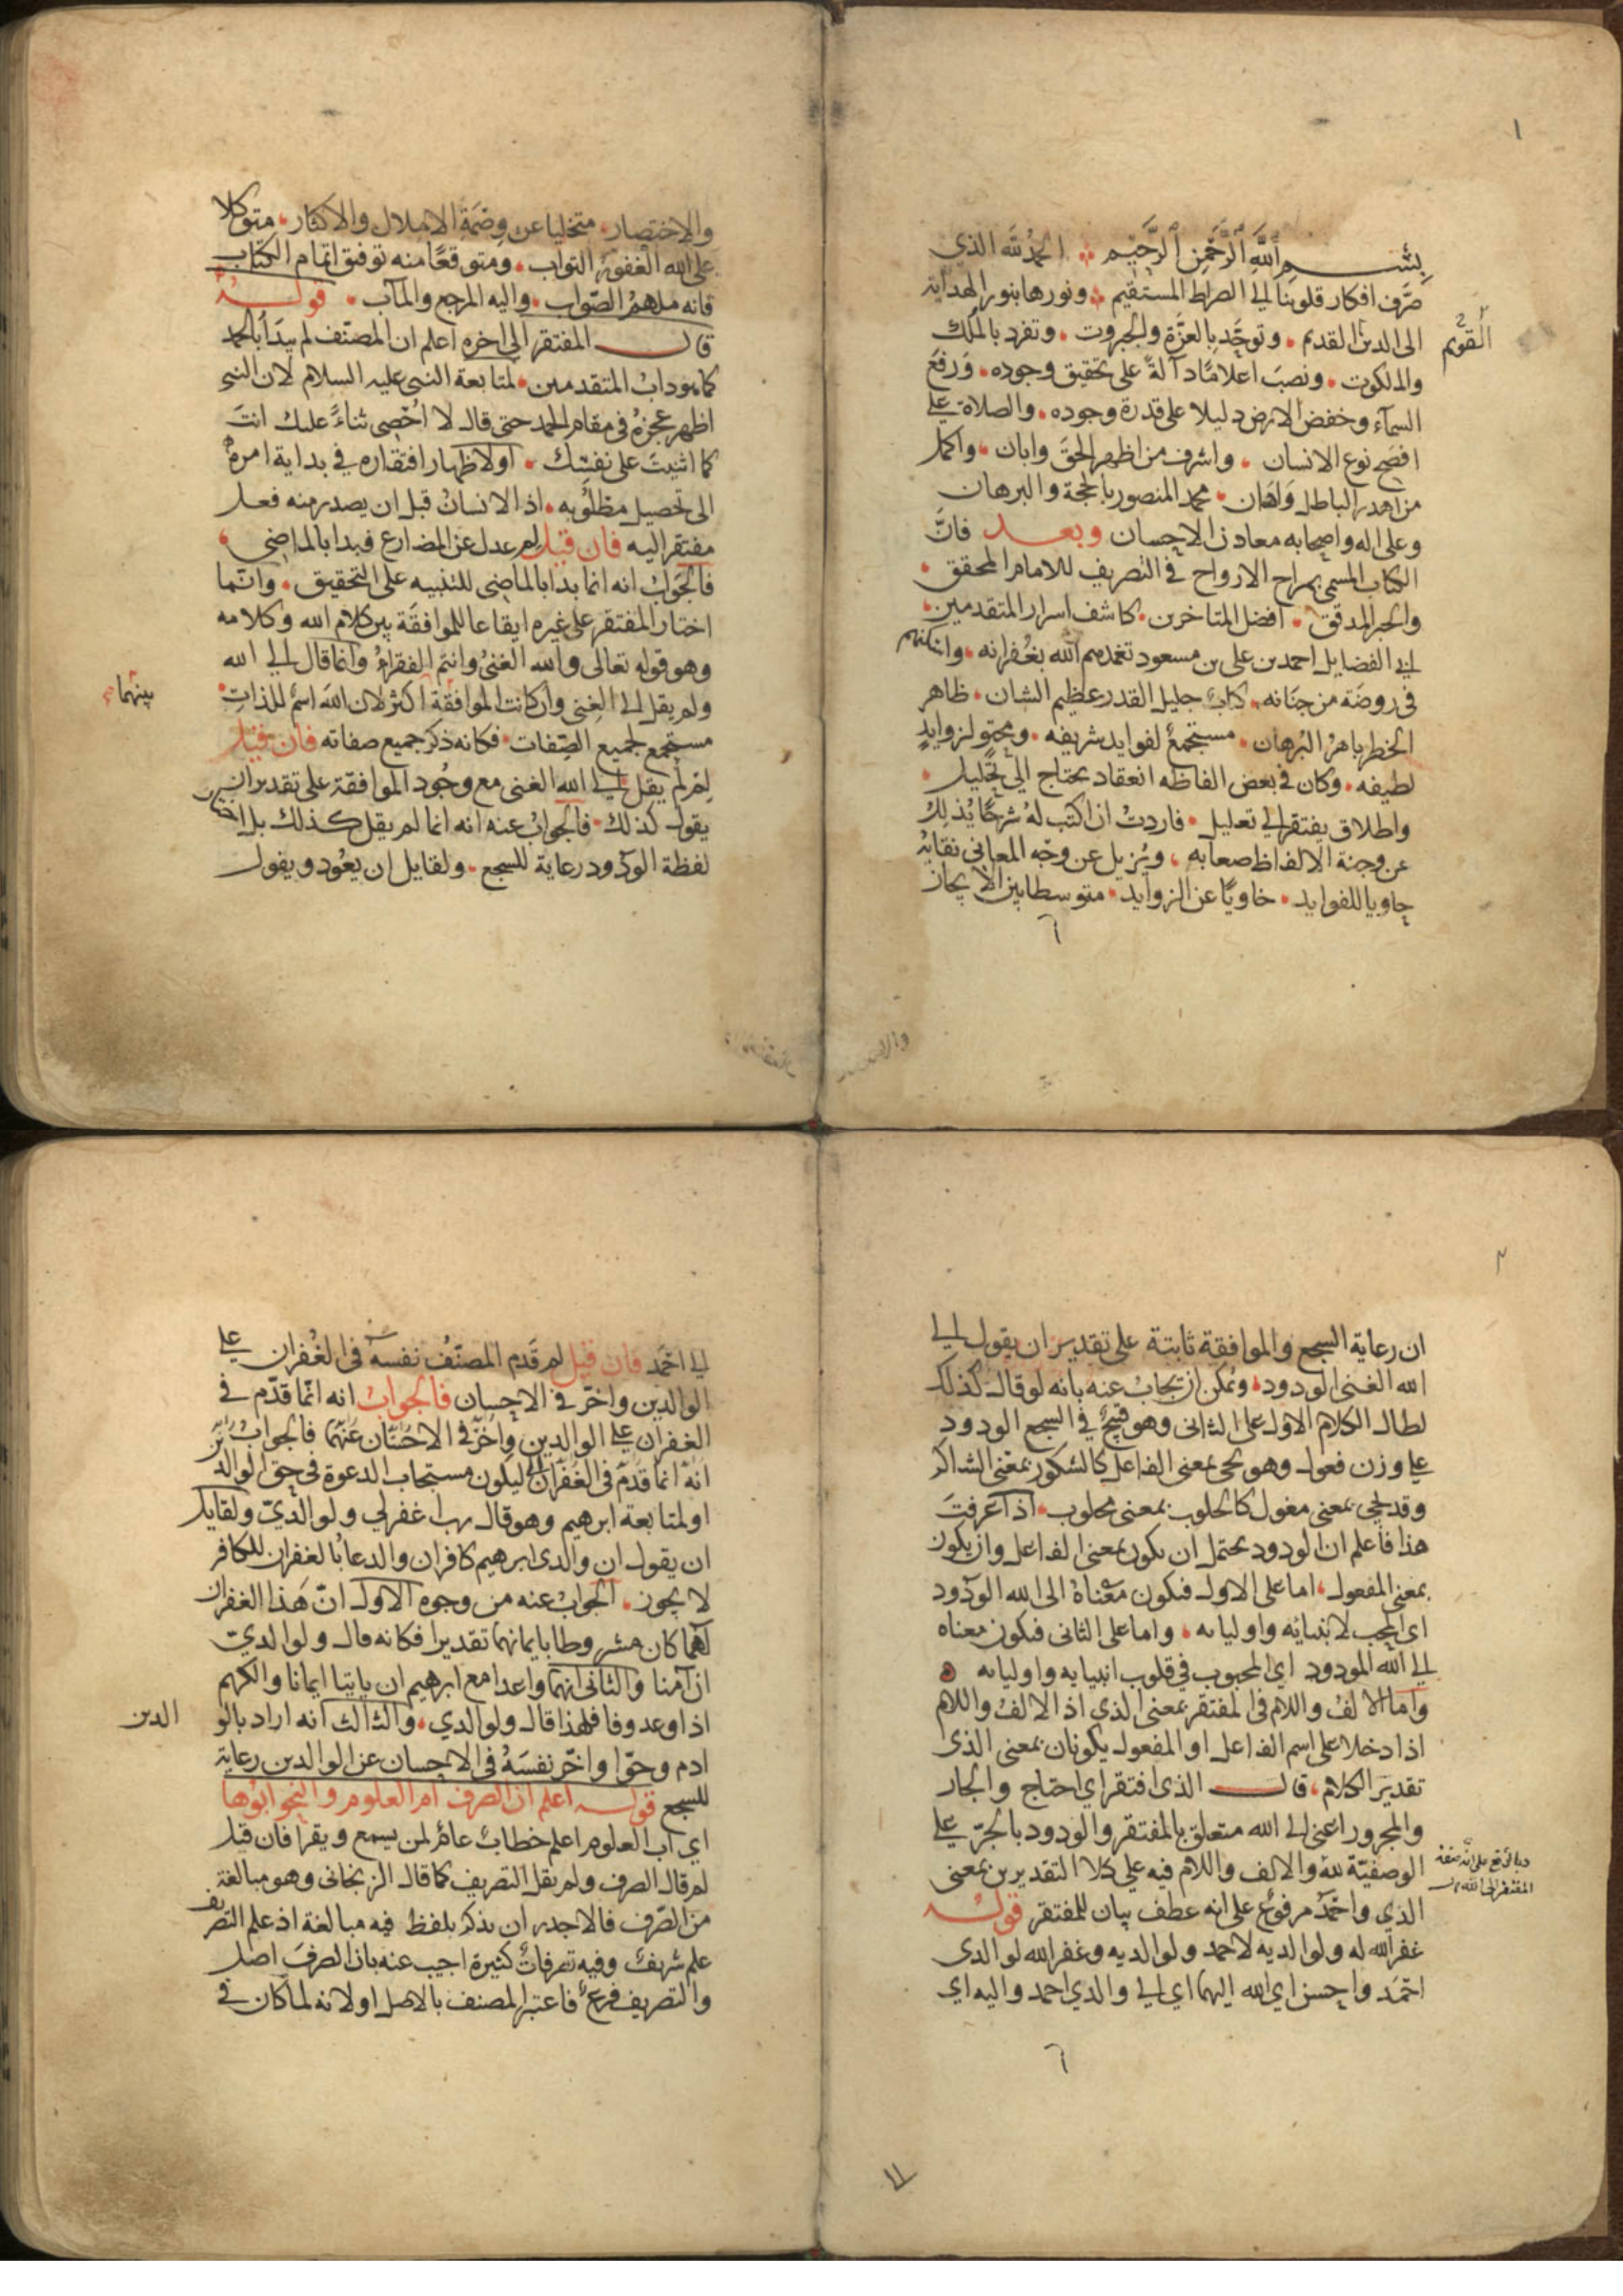 ١
بسم الله الرحمن الرحيم الحمد لله الذي
صرف افكار قلوبنا الى الصراط المستقيم ونورها بنور الهداية
الى الدين القديم وتوحد بالعزة والجبروت وتفرد بالملك
القويم
والملكوت ونصب اعلاما دآلة على تحقيق وجوده ورفع
السمآء وخفض الارض دليلا على قدرة وجوده والصلاة على
افصح نوع الانسان واشرف من اظهر الحق وابان واكمل
من اهدر الباطل واهان محمد المنصور بالحجة والبرهان
وعلى اله واصحابه معادن الاحسان وبعد فان
الكتاب المسمى بمراح الارواح في التصريف للامام المحقق
والحبر المدقق افضل المتاخرين كاشف اسرار المتقدمين
ابي الفضايل احمد بن على بن مسعود تغمدهم الله بغفرانه واسكنهم
في روضة من جنانه كتاب جليل القدر عظيم الشان ظاهر
الخطر باهر البرهان مستجمع لفوايد شريفه ومحتو لزوايد
لطيفه وكان في بعض الفاظه انعقاد يحتاج الى تحليل
واطلاق يفتقر الى تعليل فاردت ان اكتب له شرحا يذلل
عن وجنة الالفاظ صعابه ويزيل عن وجه المعاني نقابه
حاويا للفوايد خاويا عن الزوايد متوسطا بين الايجاز
والاختصار متخليا عن وصمة الاملال والاكثار متوكلا
على الله الغفور التواب ومتوقعا منه توفيق اتمام الكتاب
فانه ملهم الصواب واليه المرجع والمآب قوله
قال المفتقر الى اخره اعلم ان المصنف لم يبدا بالحمد
كما هو داب المتقدمين لمتابعة النبي عليه السلام لان النبي
اظهر عجزه في مقام الحمد حتى قال لا احصى ثناء عليك انت
كما اثنيت على نفسك اولاظهار افتقاره في بداية امره
الى تحصيل مطلوبه اذ الانسان قبل ان يصدر منه فعل
مفتقر اليه فان قيل لم عدل عن المضارع فبدا بالماضي
فالجواب انه انما بدا بالماضي للتنبيه على التحقيق وانما
اختار المفتقر على غيره ايقاعا للموافقة بين كلام الله وكلامه
وهو قوله تعالى والله الغنى وانتم الفقراء وانما قال الى الله
ولم يقل الى الغنى وان كانت الموافقة اكثر لان الله اسم للذات
بينهما
مستجمع لجميع الصفات فكانه ذكر جميع صفاته فان قيل
لم لم يقل الى الله الغنى مع وجود الموافقة على تقدير ان
يقول كذلك فالجواب عنه انه انما لم يقل كذلك بل اختار
لفظة الودود رعاية للسجع ولقايل ان يعود ويقول
٢
ان رعاية السجع والموافقة ثابتة على تقدير ان يقول الى
الله الغنى الودود ويمكن ان يجاب عنه بانه لو قال كذلك
لطال الكلام الاول على الثانى وهو قبيح في السجع الودود
على وزن فعول وهو يجى بمعنى الفاعل كالشكور بمعنى الشاكر
وقد يجى بمعنى مفعول كالحلوب بمعنى محلوب اذا عرفت
هذا فاعلم ان الودود يحتمل ان يكون بمعنى الفاعل وان يكون
بمعنى المفعول اما على الاول فيكون معناه الى الله الودود
اى المحب لانبيائه واوليايه واما على الثانى فيكون معناه
الى الله المودود اي المحبوب في قلوب انبيايه واوليايه
واما الالف واللام في المفتقر بمعنى الذي اذ الالف واللام
اذا دخلا على اسم الفاعل او المفعول يكونان بمعنى الذى
تقدير الكلام قال الذى افتقر اي احتاج والجار
والمجرور اعنى الى الله متعلق بالمفتقر والودود بالجر على
الوصفية لله والالف واللام فيه على كلا التقديرين بمعنى
وبالرفع على انه صفة
المفتقر الى الله
الذى واحمد مرفوع على انه عطف بيان للمفتقر قوله
غفر الله له ولوالديه لاحمد ولوالديه وغفر الله لوالدى
احمد واحسن اي الله اليهما اي الى والدي احمد واليه اى
الى احمد فان قيل لم قدم المصنف نفسه فى الغفران على
الوالدين واخر في الاحسان فالجواب انه انما قدم في
الغفران على الوالدين واخر في الاحسان عنهما فالجواب
انه انما قدم في الغفران ليكون مستجاب الدعوة في حق الوالد
او لمتابعة ابرهيم وهو قال رب اغفر لي ولوالدي ولقايل
ان يقول ان والدى ابرهيم كافران والدعا بالغفران للكافر
لا يجوز الجواب عنه من وجوه الاول ان هذا الغفران
لهما كان مشروطا بايمانهما تقديرا فكانه قال ولوالدي
ان آمنا والثانى انهما واعدا مع ابرهيم ان ياتيا ايمانا والكريم
اذا وعد وفا فلهذا قال ولوالدي والثالث انه اراد بالو
الدين
ادم وحوا واخر نفسه في الاحسان عن الوالدين رعاية
للسجع قوله اعلم ان الصرف ام العلوم والنحو ابوها
اي اب العلوم اعلم خطاب عام لمن يسمع ويقرا فان قيل
لم قال الصرف ولم يقل التصريف كما قال الزنجانى وهو مبالغة
من الصرف فالاجدر ان يذكر بلفظ فيه مبالغة اذ علم التصريف
علم شريف وفيه تصرفات كثيرة اجيب عنه بان الصرف اصل
والتصريف فرع فاعتبر المصنف بالاصل اولانه لما كان في